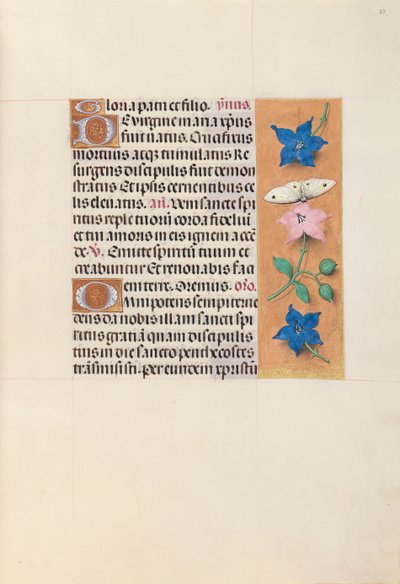 Gloria patri et filio. ymnus.
De virgine maria xp̄us
fuit natus. Crucifixus
mortuus atq; tumulatus Re
surgens discipulis fuit demon
stratus Et ipsis cernentibus ce
lis eleuatus. añ. Veni sancte spi
ritus reple tuorū corda fideliū
et tui amoris in eis ignem accē
de. V. Emitte spiritū tuum et
creabuntur Et renouabis faci
em terre. Oremus. oro.
Omnipotens sempiterne
deus da nobis illam sancti spi
ritus gratiā quam discipulis
tuis in die sancto penthecostes
trāsmisisti. Per eundem xp̄ristū